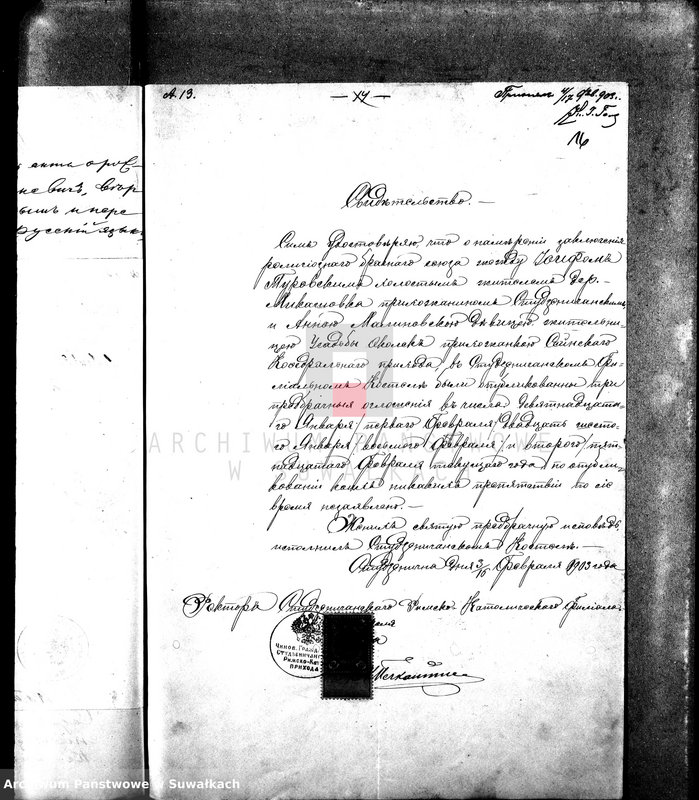 А 13.
— XV —
16
акта
Свидѣтельство. —
Симъ Удостовѣряю, что о намѣреніи заключенія
религіознаго брачнаго союза между Іосифомъ
Туровскимъ холостымъ жителемъ дер. —
Микасювка прихожаниномъ Студзеничанскимъ
и Анною Малиновскою дѣвицею жительни-
цею Усадьбы прихожанкою Сейнскаго
Каѳедральнаго прихода, въ Студзеничанскомъ Фи-
ліальномъ Костелѣ были опубликованны три
предбрачныя оглашенія въ числа девятнадцата-
го Января/перваго Февраля/двадцать шеста-
го Января/восьмого Февраля/и второго/пят-
надцатаго Февраля текущаго года, по опубли-
кованіи коихъ никакихъ препятствій по сіе
время незаявлено. —
Женихъ святую предбрачную исповѣдь
исполнилъ Студзеничанскомъ Костелѣ. —
Студзенична Дня 2/15 Февраля 1903 года
Ректоръ Студзеничанскаго Римско-Католическаго Филіаль-
Чинов. Гражд.
Студзеничан
Римско-Кат
прихода
ARCHIWUM PAŃSTWOWE
W SUWAŁKACH
Archiwum Państwowe w Suwałkach